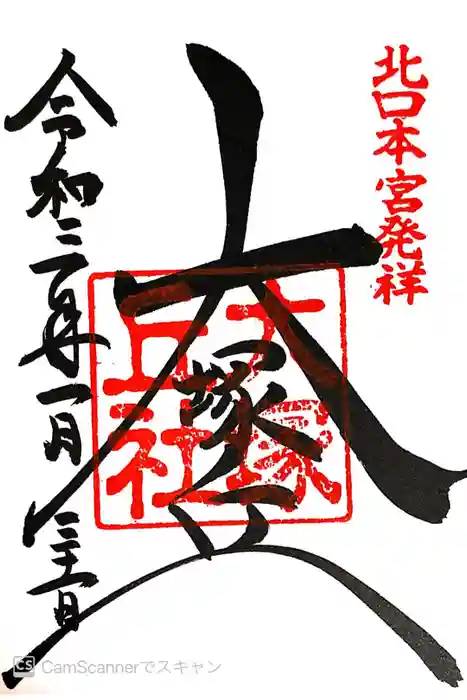 北口本宮発祥
大塚丘
大塚
丘社
令和三年一月三十一日
CS CamScannerでスキャン